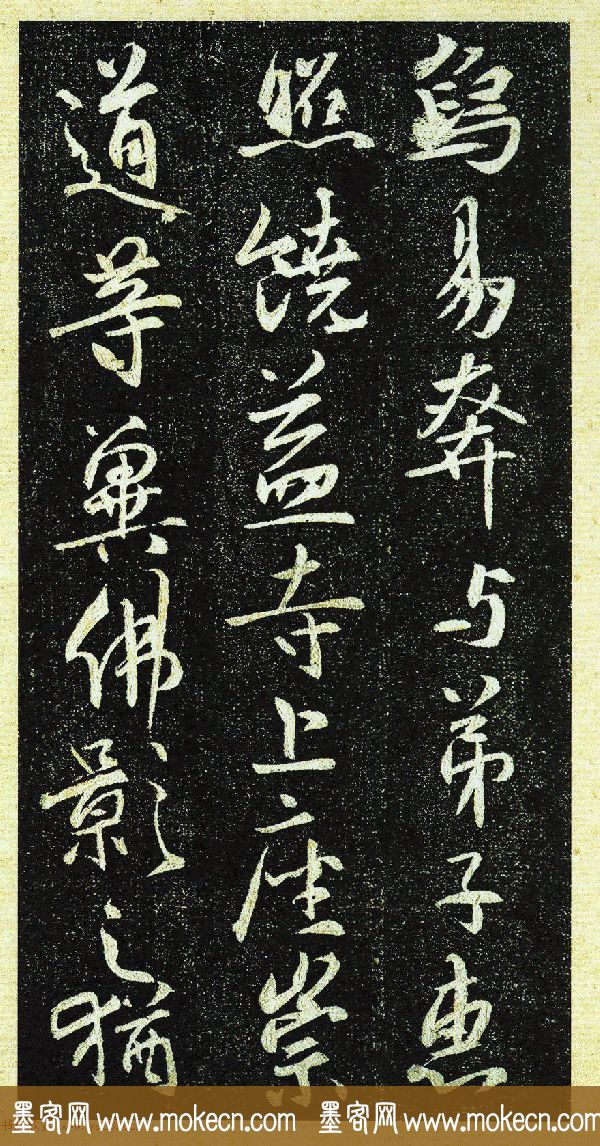 烏易奔与弟子惠
照饒益寺上座崇
道等冀佛影之猶
墨客网 www.mokecn.com 墨客网 www.mokecn.com